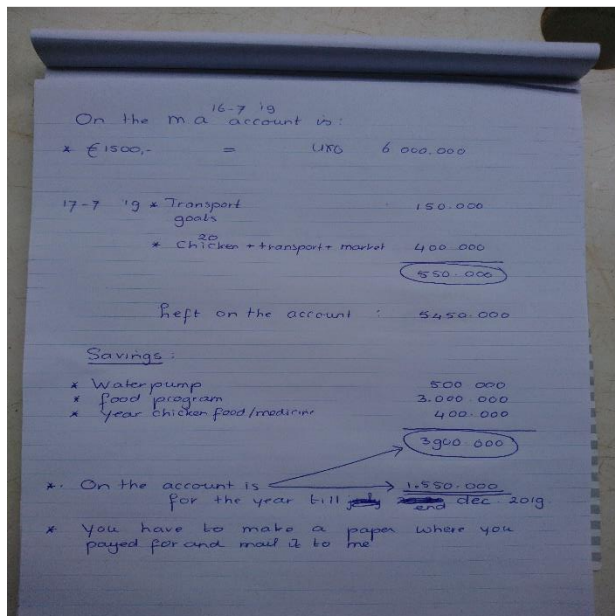 16-7 '19
On the ma account is:
* € 1500,- = UXG 6 000.000
17-7 '19 * Transport 150.000
goals
20
* Chicken + transport + market 400.000
550.000
Left on the account : 5450.000
Savings :
* Waterpump 500 000
* food program 3.000.000
* year chicken food/medicine 400.000
3900.000
*. On the account is 1.550.000
for the year till end dec. 2019.
* You have to make a paper where you
payed for and mail it to me